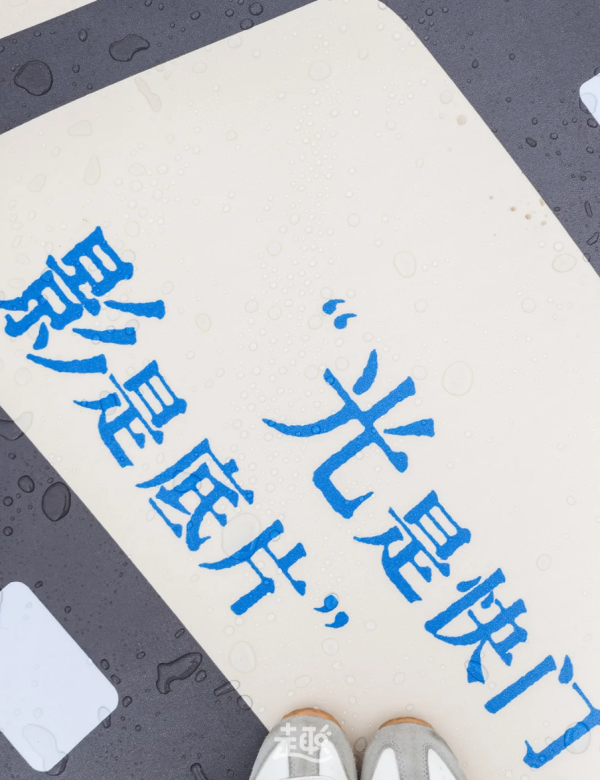 “光是快门
影是底片”
趣